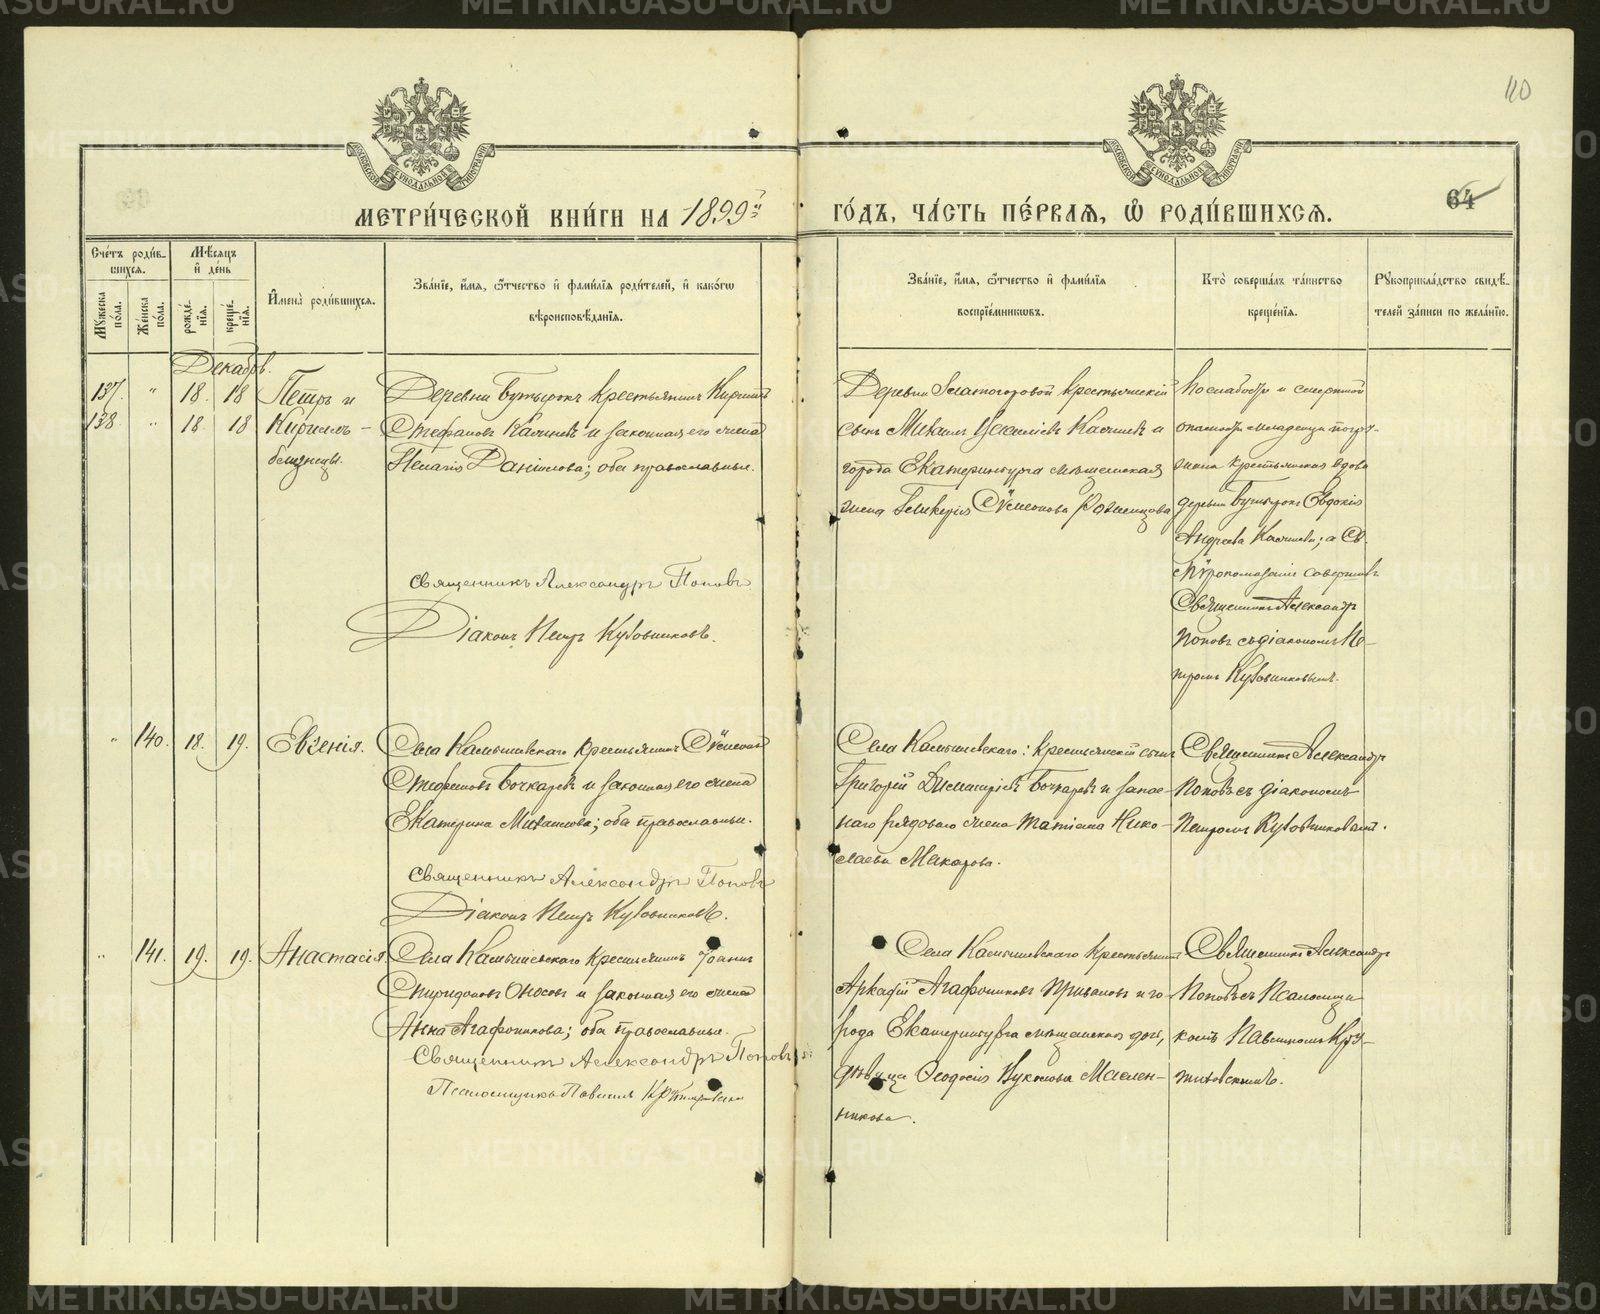 METRIKI.GASO-URAL.RU
110
64
МОСКОВСКОЙ СѴНОДАЛЬНОЙ ТИПОГРАФІИ
МОСКОВСКОЙ СѴНОДАЛЬНОЙ ТИПОГРАФІИ
МЕТРИ́ЧЕСКОЙ КНИ́ГИ НА 1899й
ГО́ДЪ, ЧА́СТЬ ПЕ́РВАѦ, Ѡ҆ РОДИ́ВШИХСѦ.
Сче́тъ роди́в-
шихсѧ.
Мꙋжеска по́ла.
Же́нска по́ла.
Мѣ́сѧцъ
и҆ де́нь
рожде́-
нїѧ.
креще́-
нїѧ.
И҆мена̀ роди́вшихсѧ.
Зва́нїе, и҆́мѧ, ѻ҆́тчество и҆ фами́лїѧ роди́телей, и҆ како́гѡ
вѣроисповѣ́данїѧ.
Зва́нїе, и҆́мѧ, ѻ҆́тчество и҆ фами́лїѧ
воспрїе́мникѡвъ.
Кто̀ соверша́лъ та́инство
креще́нїѧ.
Рꙋкоприкла́дство свидѣ́-
телей за́писи по жела́нїю.
Декабрь.
137. " 18. 18 Петръ и
138 " 18 18 Кириллъ –
близнецы.
Деревни Бутырокъ крестьянинъ Кириллъ
Стефановъ Калининъ и законная его жена
Пелагія Даніилова; оба православные.
Священникъ Александръ Поповъ
Діаконъ Петръ Кубовниковъ.
Деревни крестьянскій
сынъ Михаилъ и
города Екатеринбурга мѣщанская
жена Гликерія Сѵмеонова
По слабости и смертной
опасности младенцы погру-
жена крестьянская вдова
деревни Бутырокъ Евдокія
Андреева; а Св.
Мѵропомазаніе совершалъ
Священникъ Александръ
Поповъ съ діакономъ Пе-
тромъ Кубовниковымъ.
" 140. 18. 19. Евгенія.
Села Камышевскаго крестьянинъ Сѵмеонъ
Стефановъ Бочкаревъ и законная его жена
Екатерина Михаилова; оба православные.
Священникъ Александръ Поповъ
Діаконъ Петръ Кубовниковъ.
Села Камышевскаго: крестьянскій сынъ
Григорій Димитріевъ Бочкаревъ и запас-
наго рядоваго жена Татіана Нико-
лаева Макарова.
Священникъ Александръ
Поповъ съ діакономъ
Петромъ Кубовниковымъ.
" 141. 19. 19. Анастасія.
Села Камышевскаго крестьянинъ Іоаннъ
Спиридоновъ Оносовъ и законная его жена
Анна Агафоникова; оба православные.
Священникъ Александръ Поповъ
Псаломщикъ Павелъ
Села Камышевскаго крестьянинъ
Аркадій Агафониковъ Приваловъ и го-
рода Екатеринбурга мѣщанская дочь,
дѣвица Ѳеодосія Маслен-
никова.
Священникъ Александръ
Поповъ съ Псаломщи-
комъ Павломъ